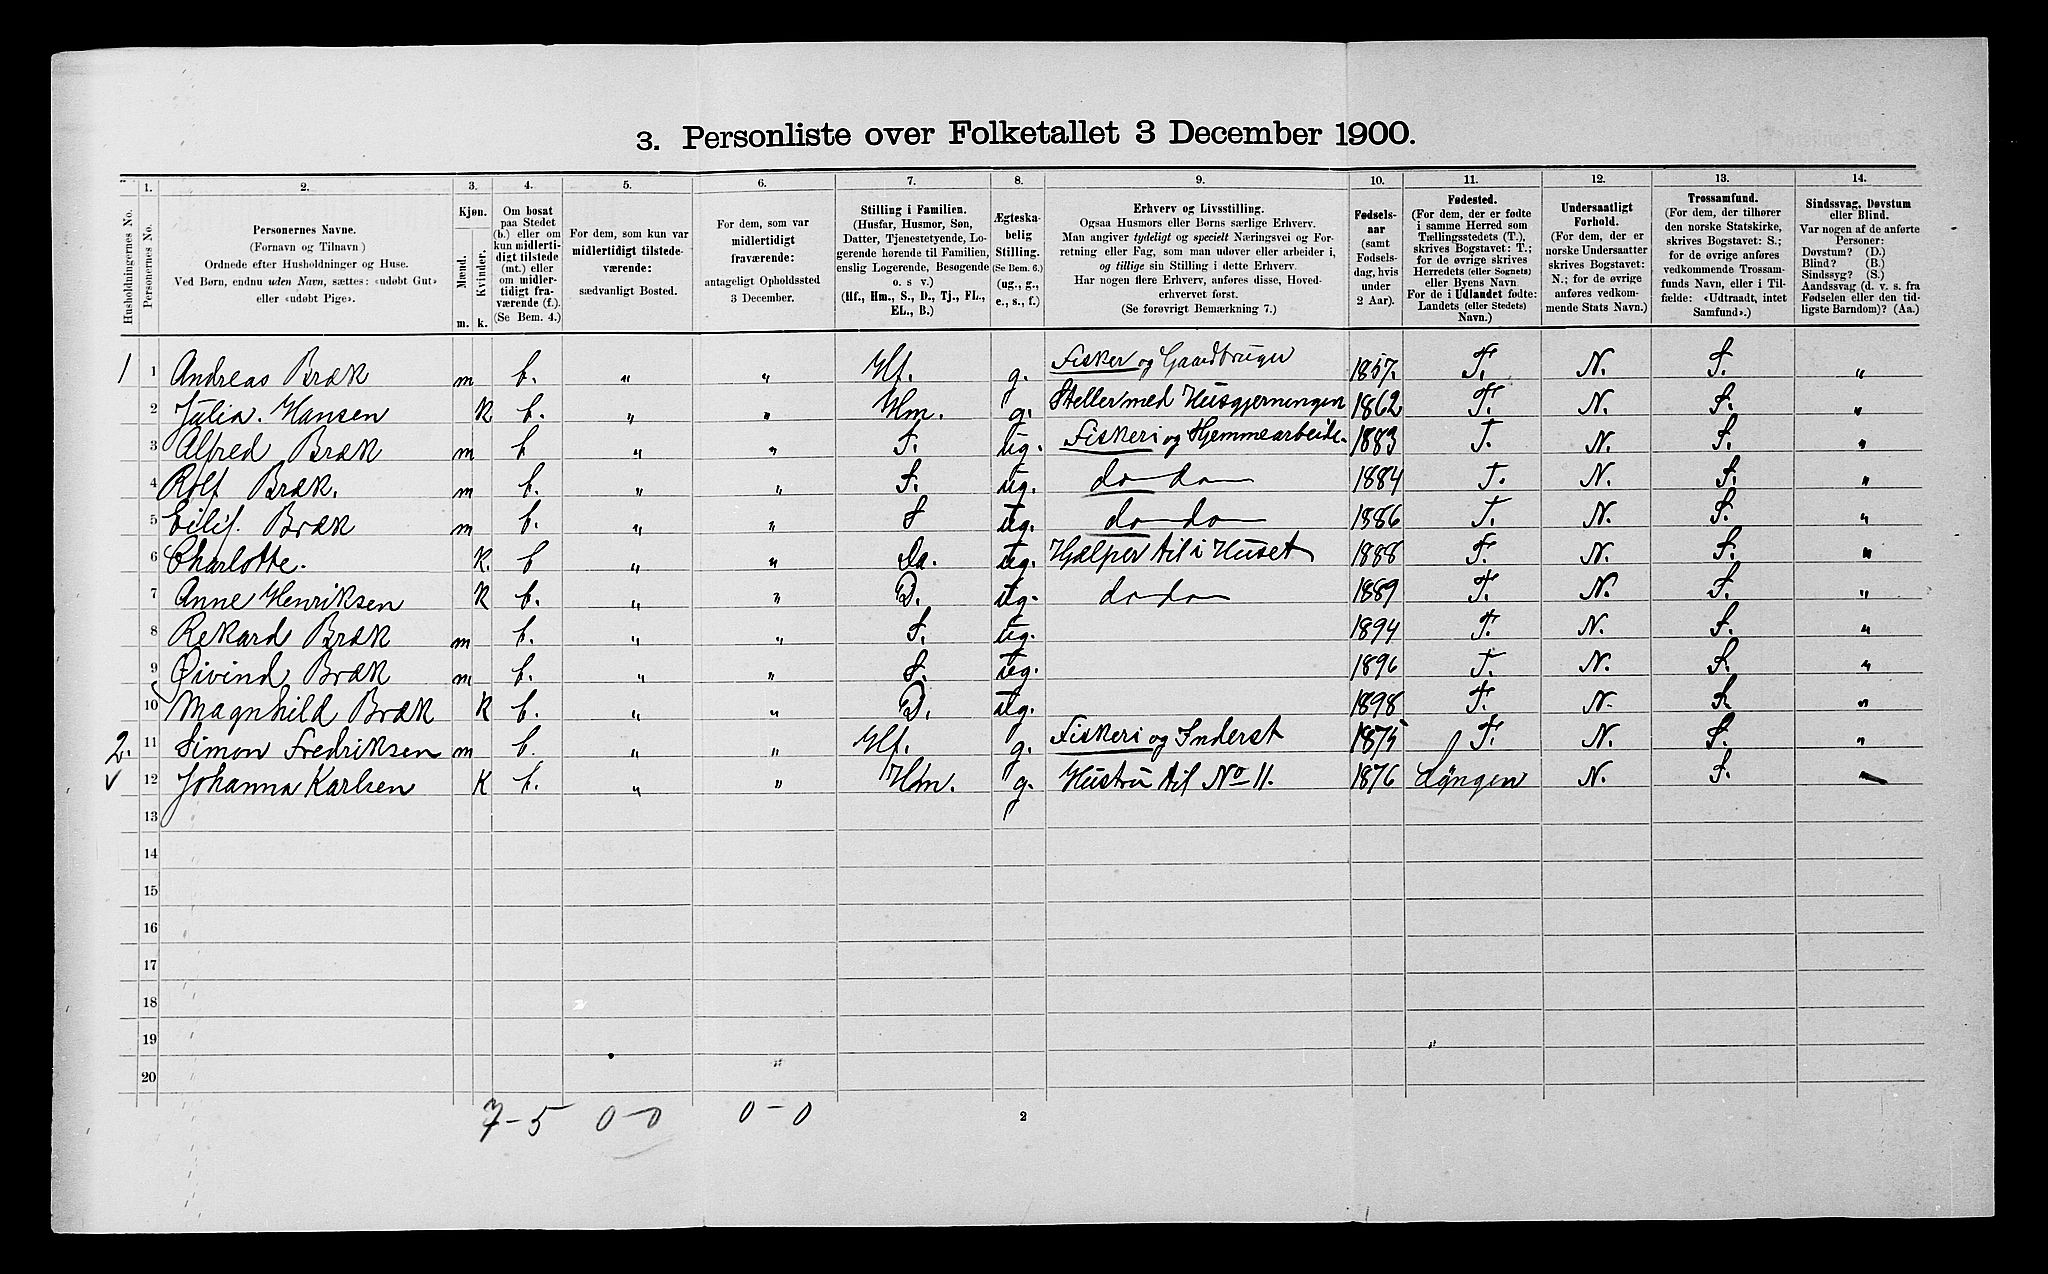 3. Personliste over Folketallet 3 December 1900.
1. 2. 3. 4. 5. 6. 7. 8. 9. 10. 11. 12. 13. 14.
Husholdningernes No.
Personernes No.
Personernes Navne.
(Fornavn og Tilnavn)
Ordnede efter Husholdninger og Huse.
Ved Børn, endnu uden Navn, sættes: «udøbt Gut»
eller «udøbt Pige».
Kjøn.
Mænd.
Kvinder.
m. k.
Om bosat
paa Stedet
(b.) eller om
kun midlerti-
digt tilstede
(mt.) eller
om midler-
tidigt fra-
værende (f.).
(Se Bem. 4.)
For dem, som kun var
midlertidigt tilstede-
værende:
sædvanligt Bosted.
For dem, som var
midlertidigt
fraværende:
antageligt Opholdssted
3 December.
Stilling i Familien.
(Husfar, Husmor, Søn,
Datter, Tjenestetyende, Lo-
gerende hørende til Familien,
enslig Logerende, Besøgende
o. s. v.)
(Hf., Hm., S., D., Tj., FL.,
EL., B.)
Ægteska-
belig
Stilling.
(Se Bem. 6.)
(ug., g.,
e., s., f.)
Erhverv og Livsstilling.
Ogsaa Husmors eller Børns særlige Erhverv.
Man angiver tydeligt og specielt Næringsvei og For-
retning eller Fag, som man udøver eller arbeider i,
og tillige sin Stilling i dette Erhverv.
Har nogen flere Erhverv, anføres disse, Hoved-
erhvervet først.
(Se forøvrigt Bemærkning 7.)
Fødsels-
aar
(samt
Fødsels-
dag, hvis
under
2 Aar).
Fødested.
(For dem, der er fødte
i samme Herred som
Tællingsstedets (T.),
skrives Bogstavet: T.;
for de øvrige skrives
Herredets (eller Sognets)
eller Byens Navn.
For de i Udlandet fødte:
Landets (eller Stedets)
Navn.)
Undersaatligt
Forhold.
(For dem, der er
norske Undersaatter
skrives Bogstavet:
N.; for de øvrige
anføres vedkom-
mende Stats Navn.)
Trossamfund.
(For dem, der tilhører
den norske Statskirke,
skrives Bogstavet: S.;
for de øvrige anføres
vedkommende Trossam-
funds Navn, eller i Til-
fælde: «Udtraadt, intet
Samfund».)
Sindssvag, Døvstum
eller Blind.
Var nogen af de anførte
Personer:
Døvstum? (D.)
Blind? (B.)
Sindssyg? (S.)
Aandssvag (d. v. s. fra
Fødselen eller den tid-
ligste Barndom)? (Aa.)
1 1 Andreas Bræk m b. „ „ Hf. g. Fisker og Gaardbruger 1857. T. N. S. „
2 Julia. Hansen K b. „ „ Hm. g. Steller med Husgjerningen 1862 T. N. S. „
3 Alfred Bræk m b „ „ S. ug. Fiskeri og Hjemmearbeide. 1883 T. N. S. „
4 Rolf Bræk. m b. „ „ S. ug. do do 1884 T. N. S. „
5 Eilif. Bræk m b. „ „ S ug. do do 1886 T. N. S. „
6 Charlotte. K. b „ „ Da. ug. Hjælper til i Huset 1888 T. N. S. „
7 Anne Henriksen K b. „ „ D. ug. do do 1889 T. N. S. „
8 Rekard Bræk m b. „ „ S. ug. 1894 T. N. S. „
9 Øivind Bræk m b. „ „ S. ug. 1896 T. N. S. „
10 Magnhild Bræk K b. „ „ D. ug. 1898 T. N. S. „
2. 11 Simon Fredriksen m b. „ „ Hf. g. Fiskeri og Inderst 1875 T. N. S. „
12 Johanna Karlsen K b. „ „ Hm. g. Hustru til No 11. 1876 Lyngen N. S.
13
14
15
16
17
18
19 „
20 „
7-5 0-0 0-0 2